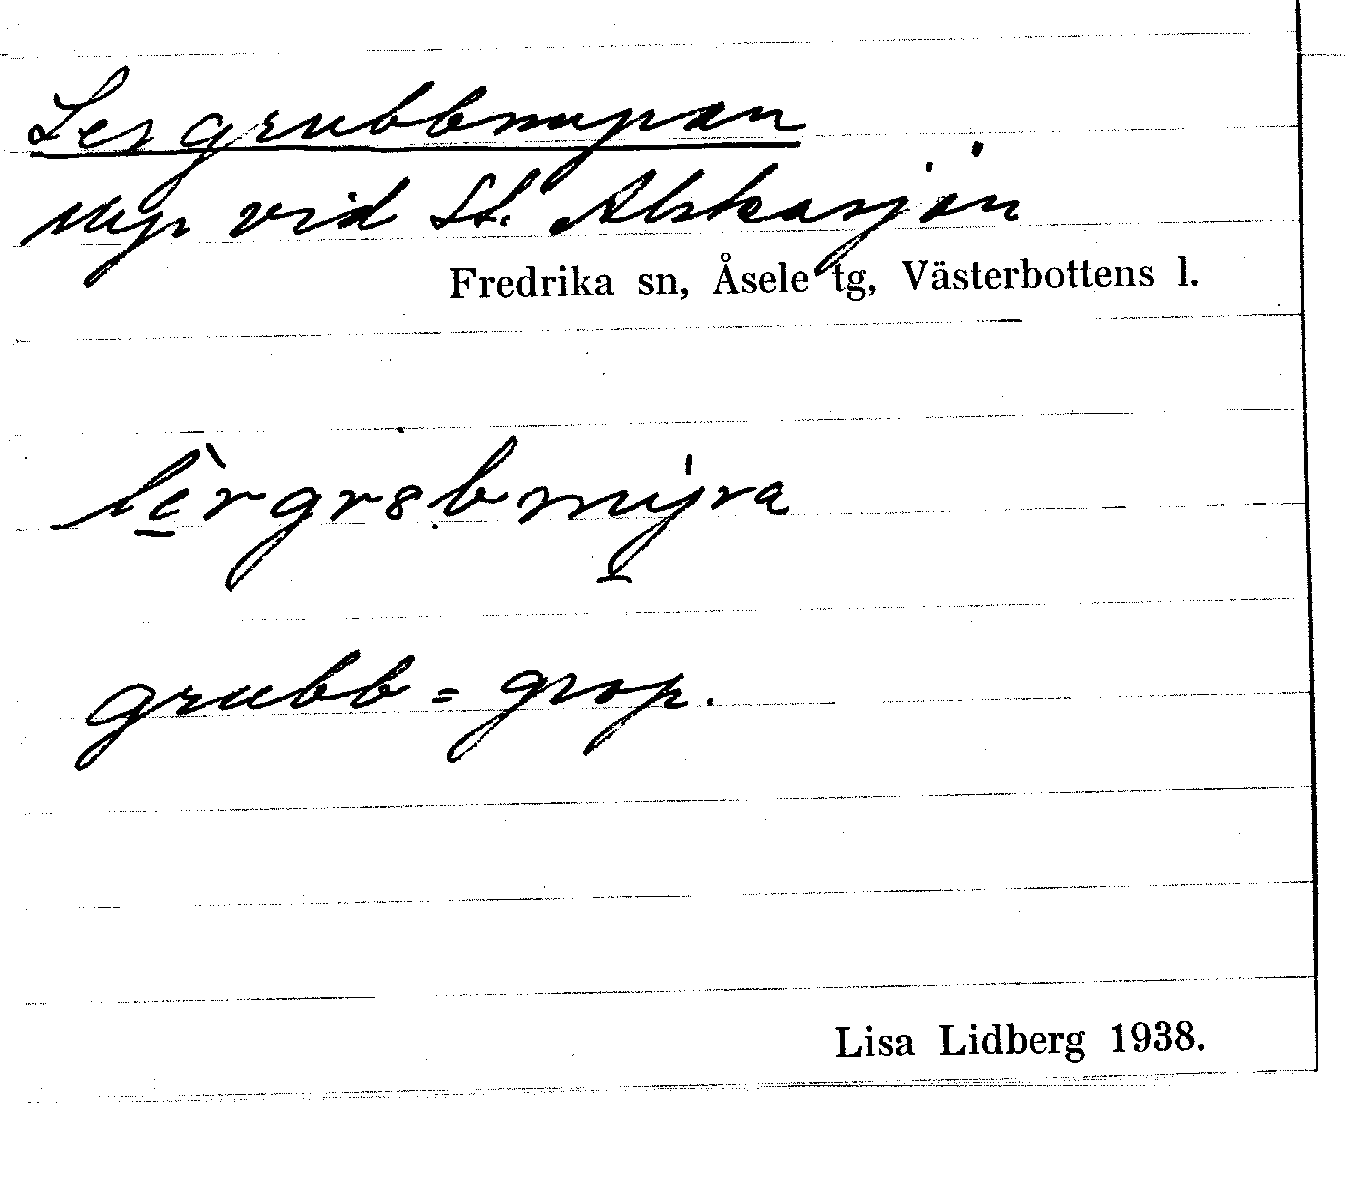 Lergrubbmyran
myr vid St. Abskasjön
Fredrika sn, Åsele tg, Västerbottens l.
grubb = grop.
Lisa Lidberg 1938.